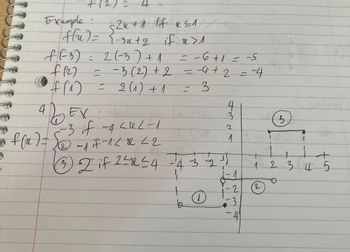 f(2) = 4
Example :
f(x) = { 2x+1 if x ≤ 1
-3x+2 if x > 1
f(-3) = 2(-3)+1 = -6+1 = -5
f(2) = -3(2)+2 = -6+2 = -4
f(1) = 2(1)+1 = 3
4) EX
f(x) = { ① -3 if -4 < x < -1
② -1 if -1 < x < 2
③ 2 if 2 ≤ x ≤ 4
4
3
2
1
-4 -3 -2 -1 1 2 3 4 5
-1
-2
-3
-4
①
②
③